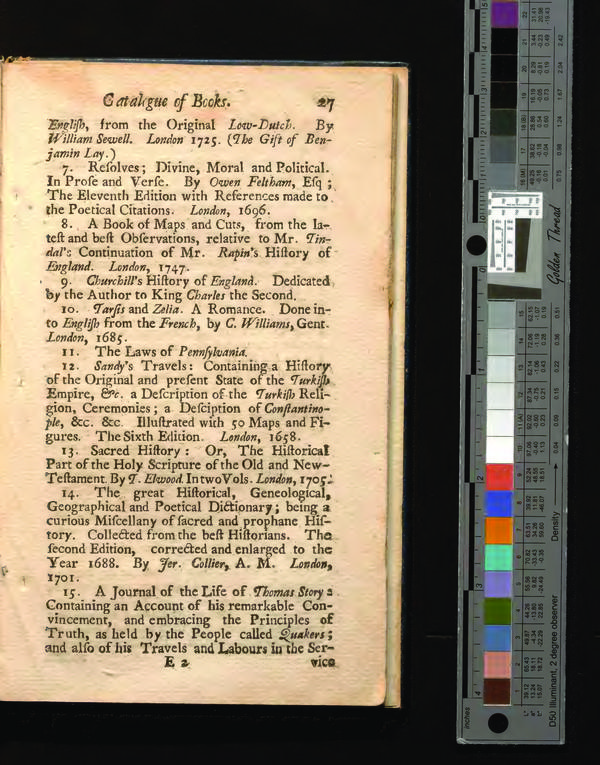 Catalogue of Books. 27
Engliſh, from the Original Low-Dutch. By
William Sewell. London 1725. (The Gift of Ben-
jamin Lay.)
7. Reſolves; Divine, Moral and Political.
In Proſe and Verſe. By Owen Feltham, Eſq;
The Eleventh Edition with References made to
the Poetical Citations. London, 1696.
8. A Book of Maps and Cuts, from the la-
teſt and beſt Obſervations, relative to Mr. Tin-
dal's Continuation of Mr. Rapin's Hiſtory of
England. London, 1747.
9. Churchill's Hiſtory of England. Dedicated
by the Author to King Charles the Second.
10. Tarſis and Zelia. A Romance. Done in-
to Engliſh from the French, by C. Williams, Gent.
London, 1685.
11. The Laws of Pennſylvania.
12. Sandy's Travels: Containing a Hiſtory
of the Original and preſent State of the Turkiſh
Empire, &c. a Deſcription of the Turkiſh Reli-
gion, Ceremonies; a Deſciption of Conſtantino-
ple, &c. &c. Illuſtrated with 50 Maps and Fi-
gures. The Sixth Edition. London, 1658.
13. Sacred Hiſtory: Or, The Hiſtorical
Part of the Holy Scripture of the Old and New-
Teſtament. By T. Elwood. In two Vols. London, 1705.
14. The great Hiſtorical, Geneological,
Geographical and Poetical Dictionary; being a
curious Miſcellany of ſacred and prophane Hiſ-
tory. Collected from the beſt Hiſtorians. The
ſecond Edition, corrected and enlarged to the
Year 1688. By Jer. Collier, A. M. London,
1701.
15. A Journal of the Life of Thomas Story:
Containing an Account of his remarkable Con-
vincement, and embracing the Principles of
Truth, as held by the People called Quakers;
and alſo of his Travels and Labours in the Ser-
E 2 vice
Golden Thread
Density
D50 Illuminant, 2 degree observer
inches